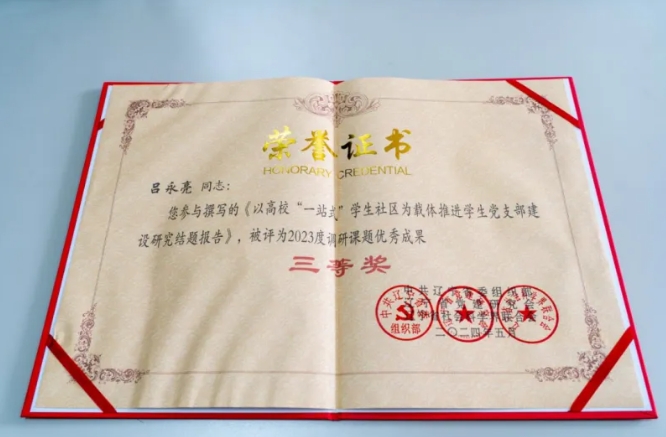 荣誉证书
HONORARY CREDENTIAL
吕永亮 同志：
您参与撰写的《以高校“一站式”学生社区为载体推进学生党支部建
设研究结题报告》，被评为2023度调研课题优秀成果
三等奖
中共辽宁省委组织部
二〇二四年五月
组织部